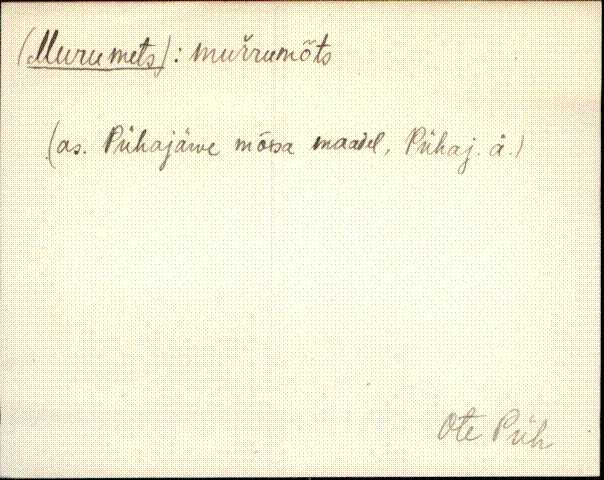 (Murumets): mur̆rumõts
(as. Pühajärve mõisa maadel, Pühaj. ä.)
Ote Püh